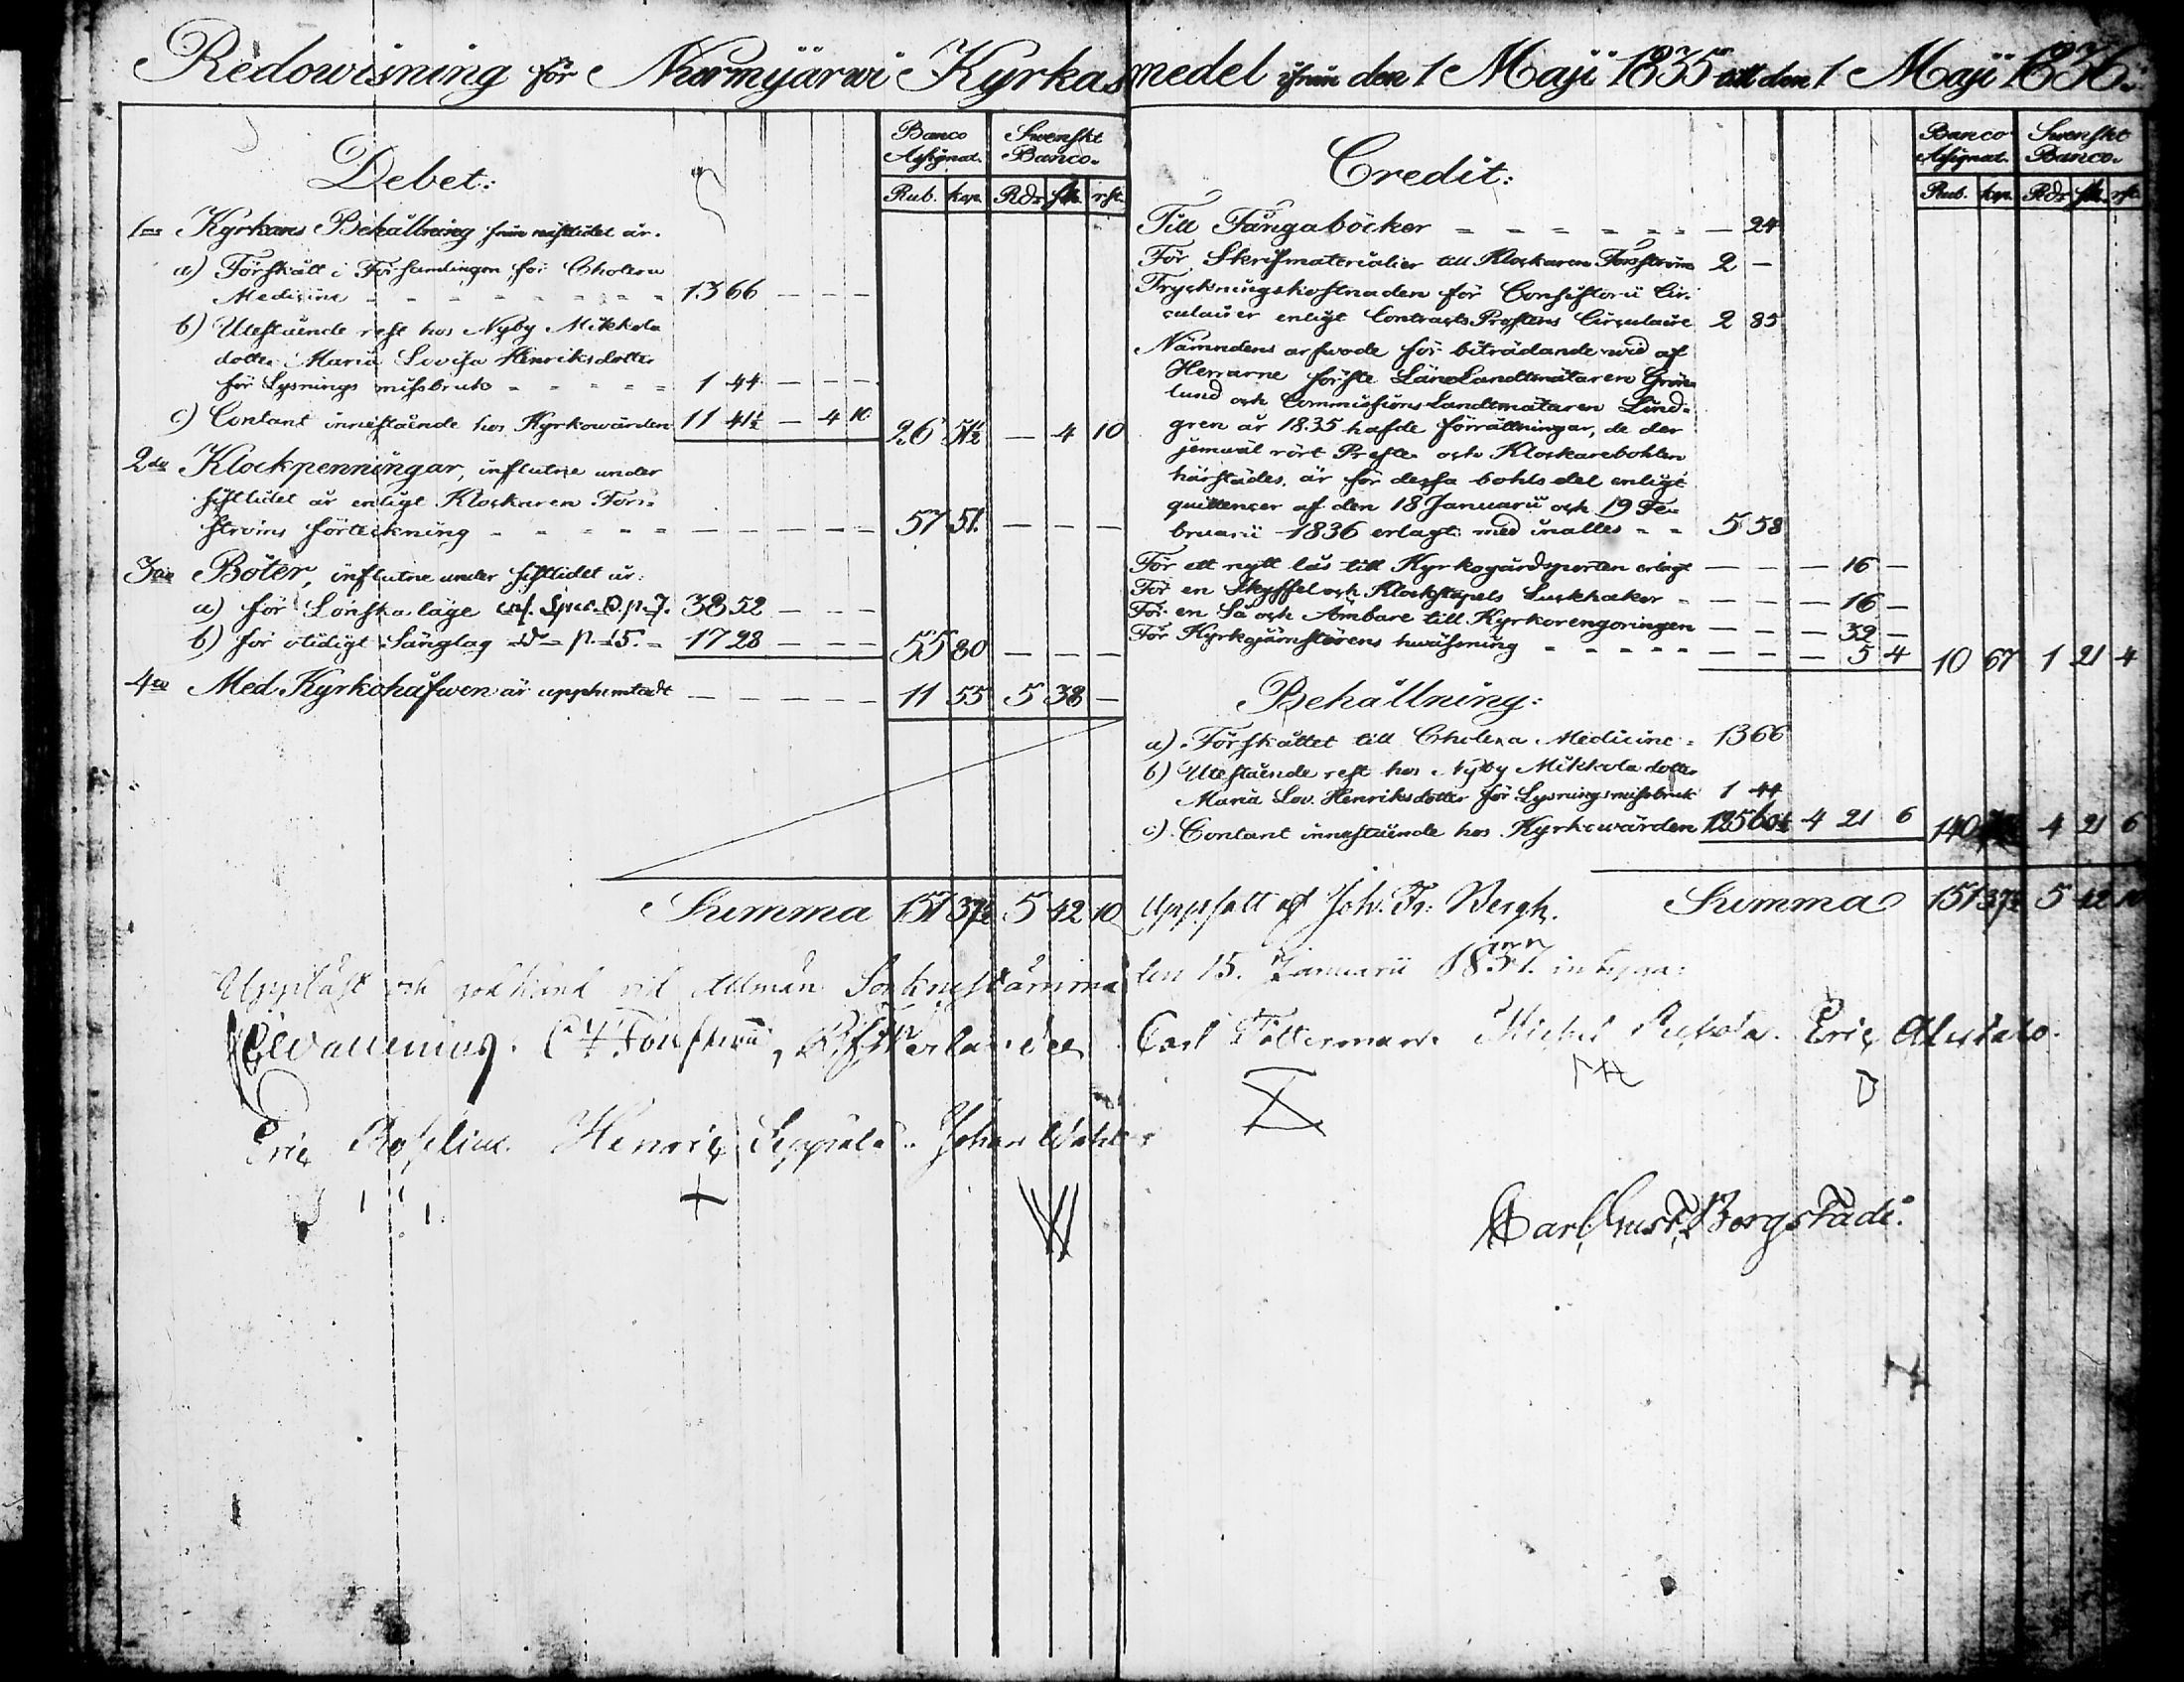 Redowisning för Nurmijärwi Kyrkas medel ifrån den 1 Maji 1835 till den 1 Maji 1836.
Debet:
Banco Assignat. Swenskt Banco.
Rub. kop. Rdr sk. rst.
1mo Kyrkans Behållning från sistlidet år.
a) Förskått i Församlingen för Cholera
Medicine - - - 13 66 - - -
b) Utestående rest hos Nyby Mikkola
dotter Maria Lovisa Henriksdotter
för Lysnings missbruk - - - 1 44 - - -
c) Contant innestående hos Kyrkowärden 11 41½ - 4 10 26 51½ - 4 10
2do Klockpenningar, influtne under
sistlidet år enligt Klockaren Fors-
ströms förteckning - - - 57 51 - - -
3tio Böter, influtne under sistlidet år:
a) för Lönskaläge conf. Spec. p. 7. 38 52 - - -
b) för otidigt Sänglag -d- p. 15. 17 28 - - - 55 80 - - -
4to Med Kyrkohåfwen är upphemtadt - - - 11 55 5 38 -
Summa 151 37½ 5 42 10
Credit:
Banco Assignat. Swenskt Banco.
Rub. kop. Rdr sk. rst.
Till Fångaböcker - - - 24
För Skrifmaterialier till Klockaren Forsström 2 -
Tryckningskostnaden för Consistorii Cir-
culairer enligt Contracts Prostens Circulaire 2 85
Nämndens arfwode för biträdande wid af
Herrarne förste Läns Landtmätaren Grön-
lund och Commissions Landtmätaren Lind-
gren år 1835 hafde förrättningar, de der
jemwäl rört Preste och Klockarebohlen
härstädes, är för dessa bohls del enligt
quittencer af den 18 Januarii och 19 Fe-
bruarii 1836 erlagt med inalles - - 5 58
För ett nytt lås till Kyrkogårdsporten erlagt - - - 16 -
För en Skyffel och Klockstapels Luckhaker - - - 16 -
För en Så och Ämbare till Kyrkorengöringen - - - 32 -
För Kyrkojärnstörens hwässning - - - 5 4 10 67 1 21 4
Behållning:
a) Förskåttet till Cholera Medicine - 13 66
b) Utestående rest hos Nyby Mikkola dotter
Maria Lov. Henriksdotter för Lysningsmissbruk 1 44
c) Contant innestående hos Kyrkowärden 125 60½ 4 21 6 140 4 21 6
Uppsatt af Joh. Fr. Bergh. Summa 151 37½ 5 42 10
Uppläst och godkänd vid allmän Sockenstämma den 15. Januarii 1837. intyga:
Carl Fältermans Michel Eric
Eric Roselius. Henric Seppälä. Johan
Carl Gust. Borgstäde.